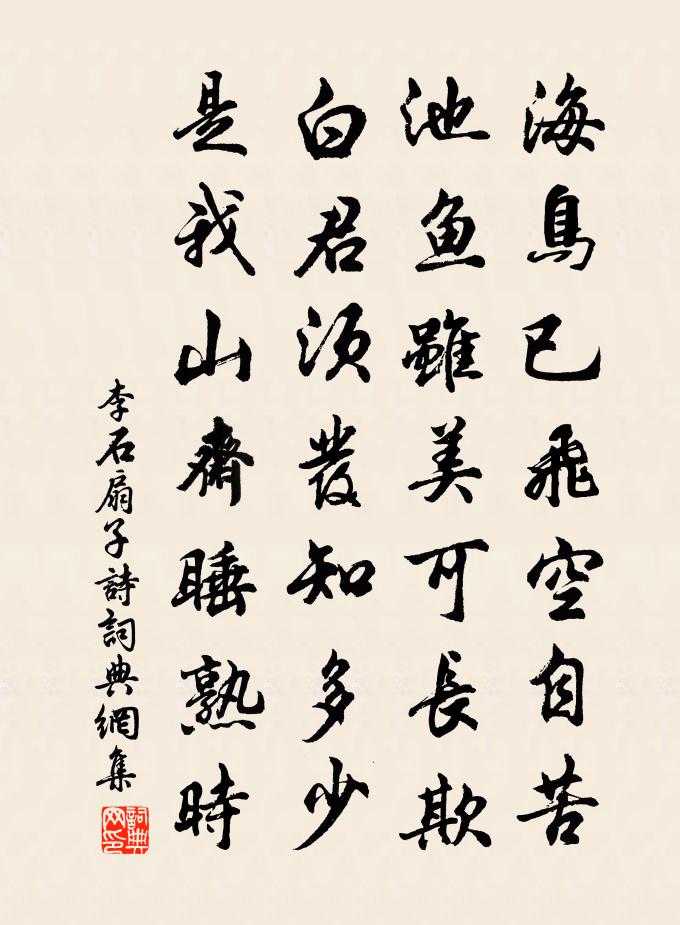 海鳥已飛空自苦
池魚雖美可長欺
白君須發知多少
是我山齋睡熟時
李石扇子詩詞典網集
詞典網印